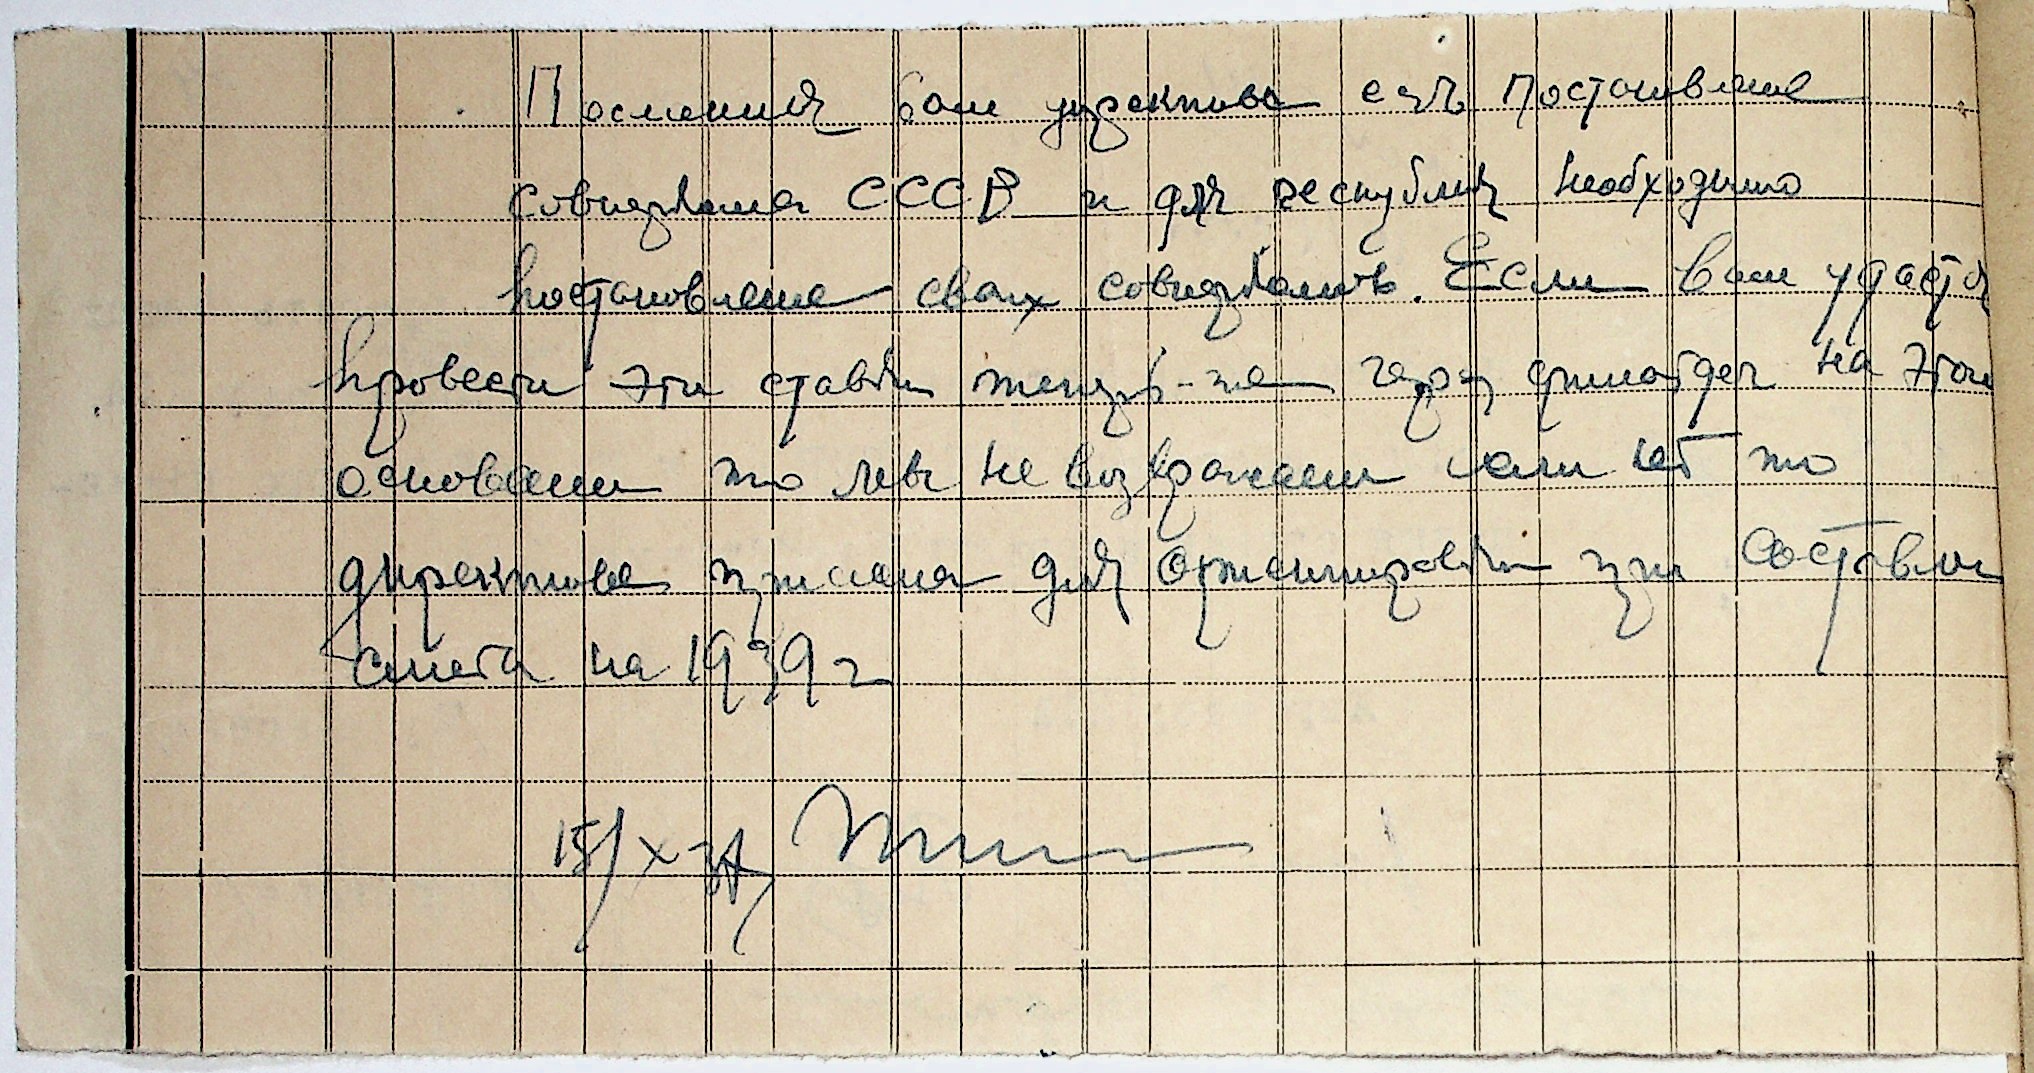 Посланная вам директива есть постановление
совнаркома СССР и для республик необходимо
постановление своих совнаркомов. Если вам удастся
провести эти ставки теперь-же через финотдел на этом
основании то мы не возражаем если нет то
директива прислана для ориентировки при составлен
смета на 1939 г
15/X-38